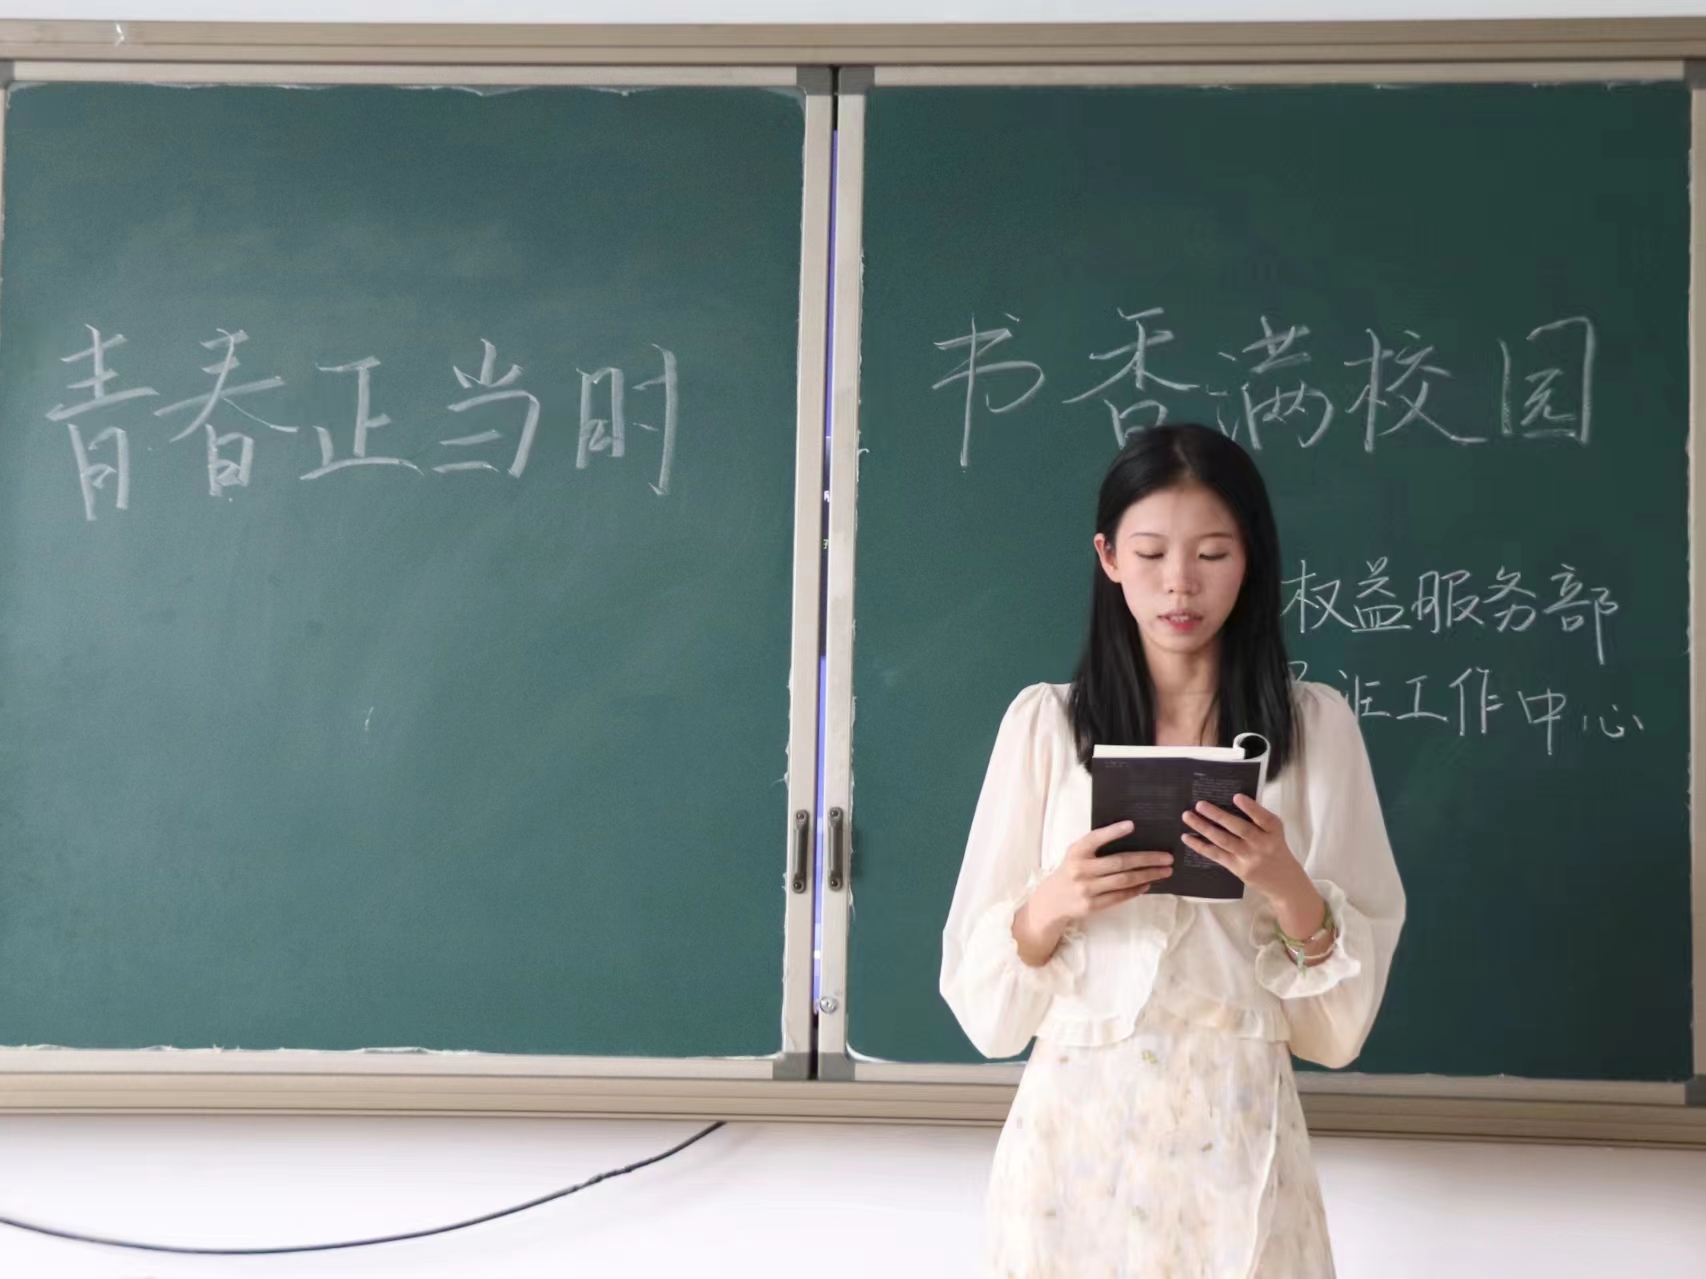 青春正当时
书香满校园
权益服务部
工作中心